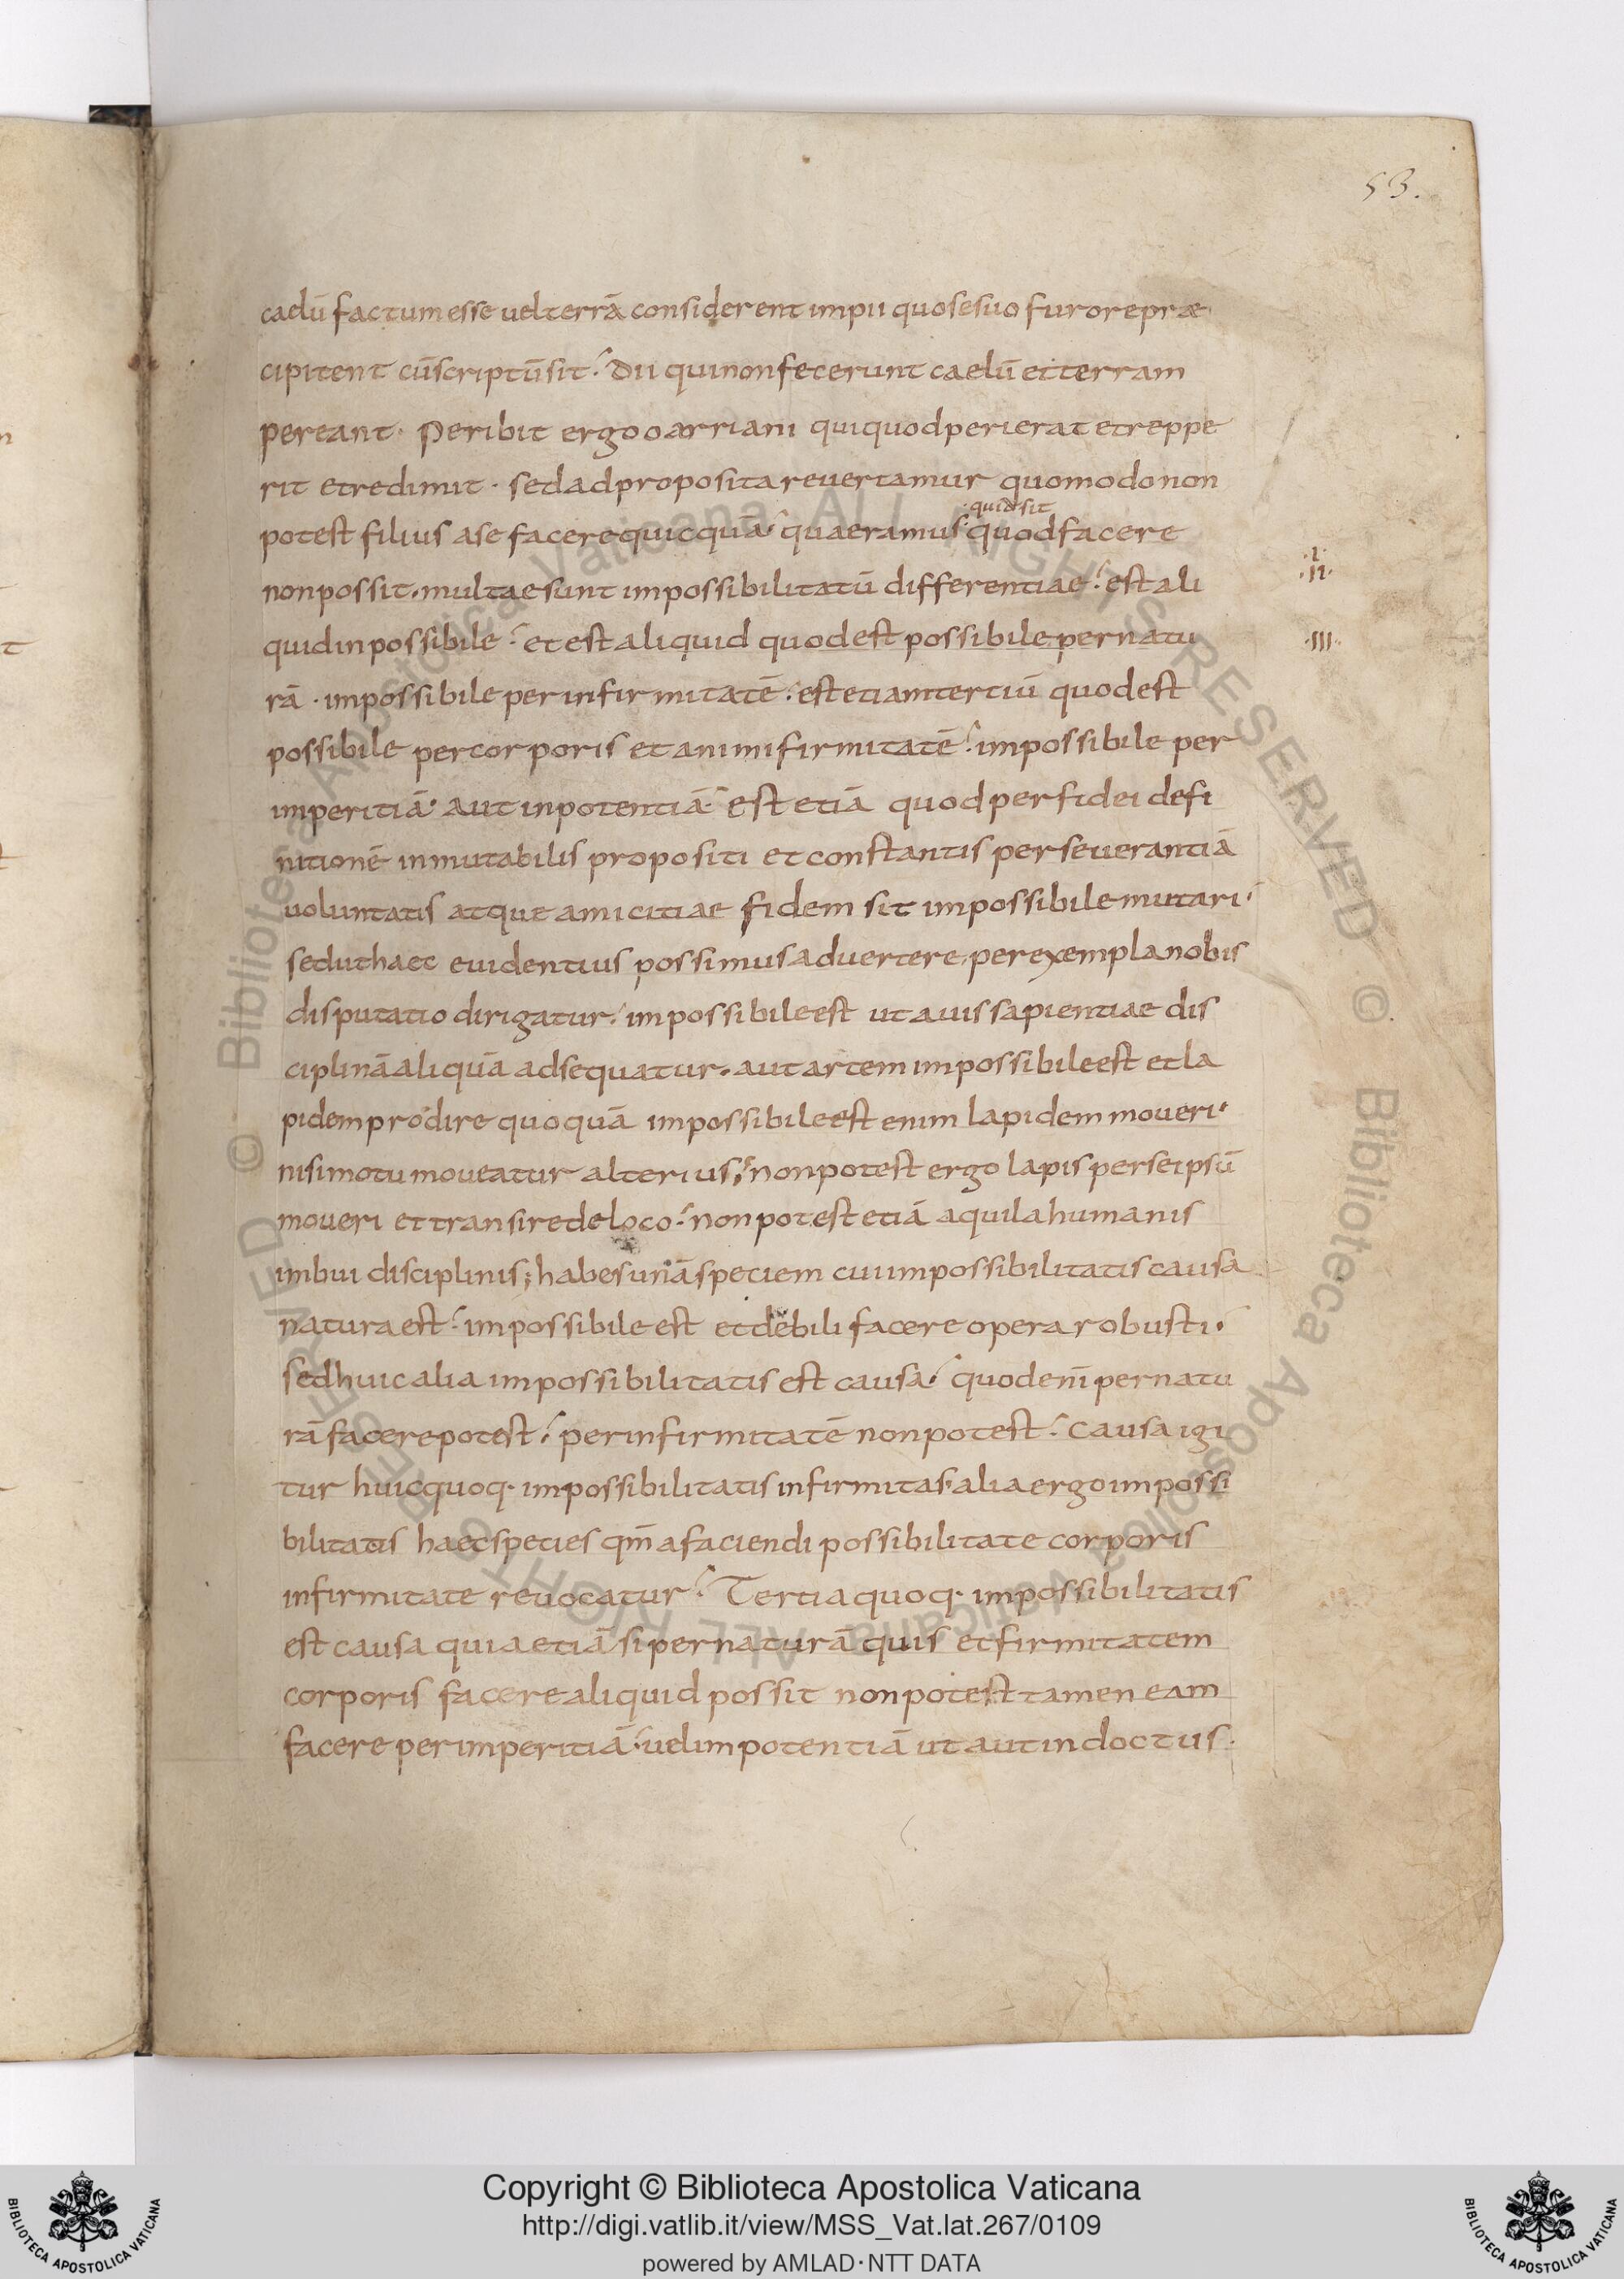 53.
caelū factum esse uel terrā considerent impii quo se suo furore præ
cipitent cū scriptū sit. dii qui non fecerunt caelū et terram
pereant. Peribit ergo o arriani qui quod perierat et reppe
rit et redimit. sed ad proposita reuertamur quomodo non
quid sit
potest filius a se facere quicquā. quaeramus quod facere
non possit. multae sunt impossibilitatū differentiae. est ali
·I·
·II·
quid inpossibile. et est aliquid quod est possibile per natu
·III·
rā. impossibile per infirmitatē. est etiam tertiū quod est
possibile per corporis et animi firmitatē. impossibile per
imperitiā. aut inpotentiā. est etiā quod per fidei defi
nitionē inmutabilis propositi et constantis perseuerantiā
uoluntatis atque amicitiae fidem sit impossibile mutari.
sed ut haec euidentius possimus aduertere, per exempla nobis
disputatio dirigatur. impossibile est ut auis sapientiae dis
ciplinā aliquā adsequatur. aut artem impossibile est et la
pidem prodire quoquā impossibile est enim lapidem moueri.
nisi motu moueatur alterius; non potest ergo lapis per se ipsū
moueri et transire de loco. non potest etiā aquila humanis
imbui disciplinis; habes unā speciem cui impossibilitatis causa
natura est. impossibile est et debili facere opera robusti.
sed huic alia impossibilitatis est causa. quod enī per natu
rā facere potest. per infirmitatē non potest. causa igi
tur huic quoq· impossibilitatis infirmitas. alia ergo impossi
bilitatis haec species qm̄ a faciendi possibilitate corporis
infirmitate reuocatur. Tertia quoq· impossibilitatis
est causa quia etiā si per naturā quis et firmitatem
corporis facere aliquid possit non potest tamen eam
facere per imperitiā. uel impotentiā ut aut indoctus.
© Biblioteca Apostolica Vaticana ALL RIGHTS RESERVED © Biblioteca Apostolica Vaticana ALL RIGHTS RESERVED
Copyright © Biblioteca Apostolica Vaticana
http://digi.vatlib.it/view/MSS_Vat.lat.267/0109
powered by AMLAD·NTT DATA
BIBLIOTECA APOSTOLICA VATICANA
BIBLIOTECA APOSTOLICA VATICANA